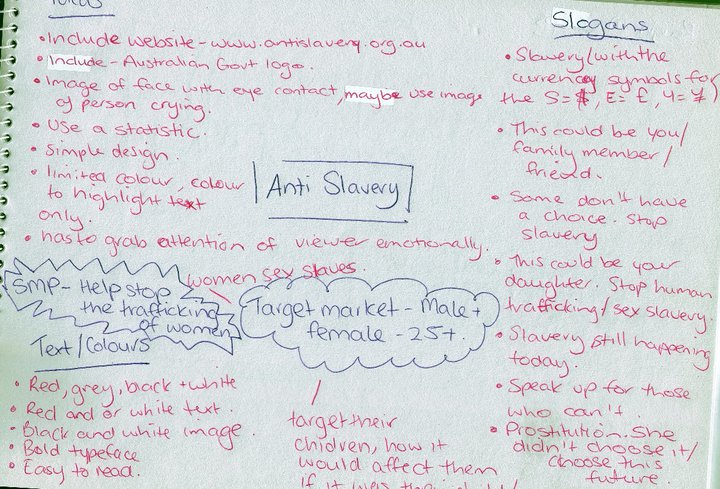 Ideas
• Include website - www.antislavery.org.au
• Include - Australian Govt logo.
• Image of face with eye contact, maybe use image
of person crying.
• Use a statistic.
• Simple design.
• limited colour, colour
to highlight text
only.
• has to grab attention of viewer emotionally.
Anti Slavery
women sex slaves.
SMP - Help stop
the trafficking
of women
Target market - Male +
female - 25+.
target their
chidren, how it
would affect them
if it was their
Text/Colours
• Red, grey, black + white
• Red and or white text.
• Black and white image.
• Bold typeface
• Easy to read.
Slogans
• Slavery (with the
currency symbols for
the S=$, E=£, Y=¥)
• This could be you/
family member/
friend.
• Some don't have
a choice. Stop
slavery
• This could be your
daughter. Stop human
trafficking/sex slavery.
• Slavery still happening
today.
• Speak up for those
who can't.
• Prostitution. She
didn't choose it/
choose this
future.